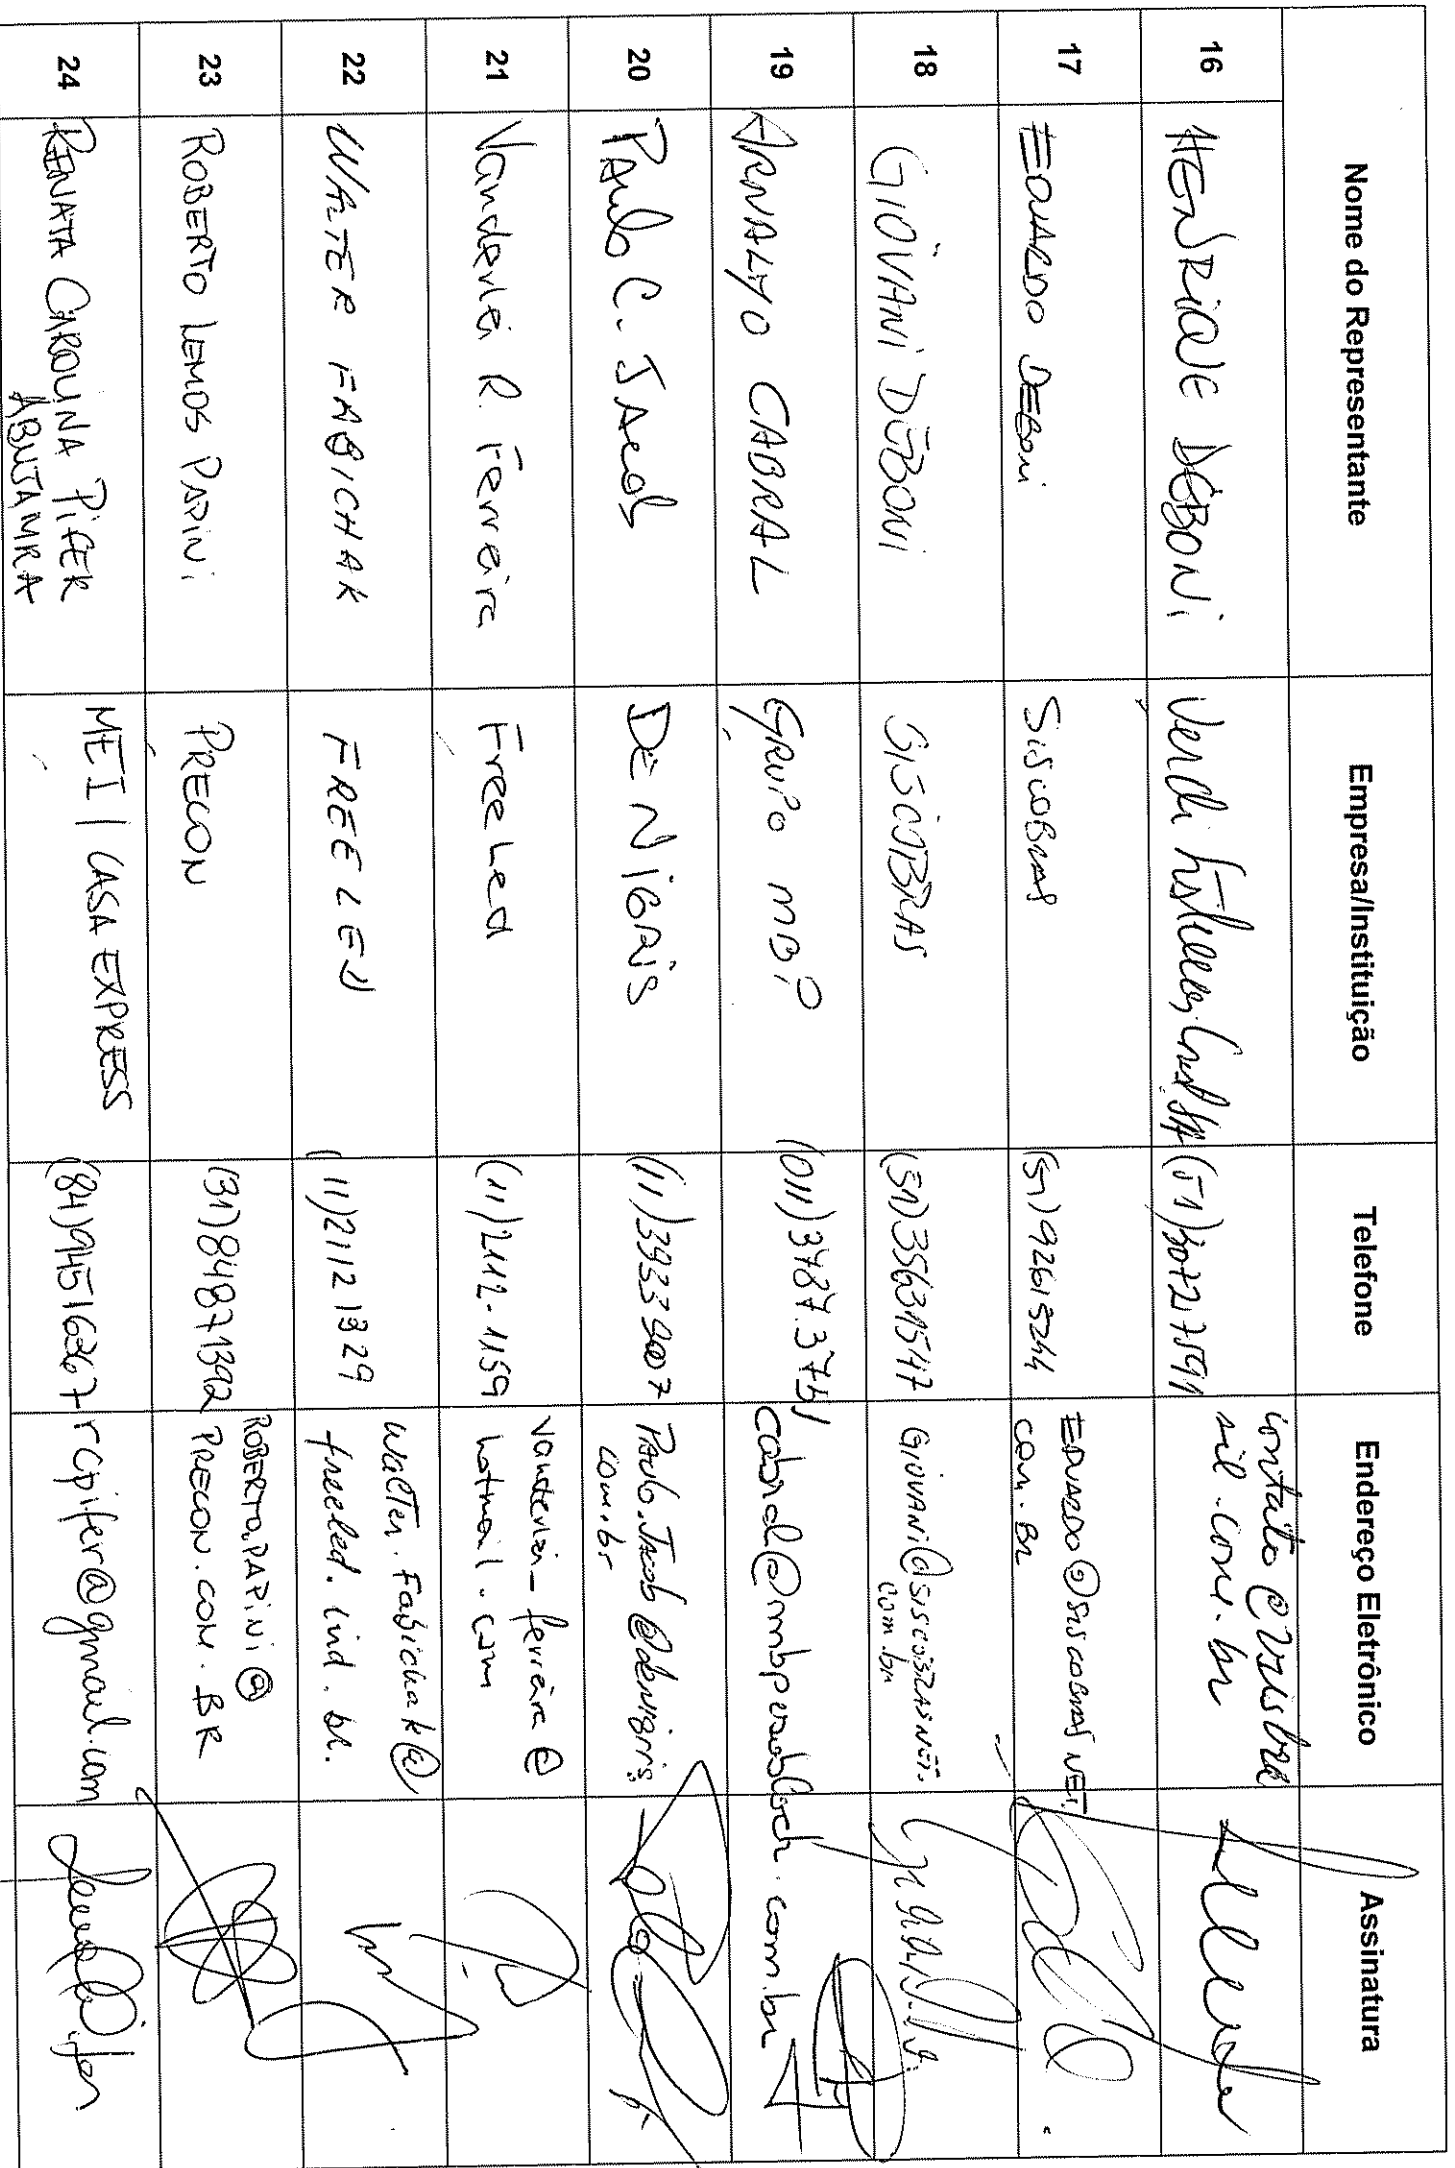 Nome do Representante Empresa/Instituição Telefone Endereço Eletrônico Assinatura
16 HENRIQUE DEBONI Verdi (51)30727591 contato@vrisbra
sil.com.br
17 EDUARDO DEBONI SISCOBRAS (51)92615244 EDUARDO@SISCOBRASNET.
COM.BR
18 GIOVANI DEBONI SISCOBRAS (51)35631547 GIOVANI@SISCOBRASNET.
com.br
19 ARNALDO CABRAL GRUPO (011)3787.3761
20 PAulo C. JAcob DE NIGRIS (11)39339007 PAulo.Jacob@denigris.
com.br
21 Vanderlei R. Ferreira FreeLed (11)2112-1159 vanderlei_ferreira@
hotmail.com
22 WALTER FABICHAK FREELED (11)21121329 walter.Fabichak@
freeled.ind.br.
23 ROBERTO LEMOS PAPINI PRECON (31)84871392 ROBERTO.PAPINI@
PRECON.COM.BR
24 RENATA CAROLINA PIFER MEI | CASA EXPRESS (84)94516367 rcpifer@gmail.com
ABUJAMRA